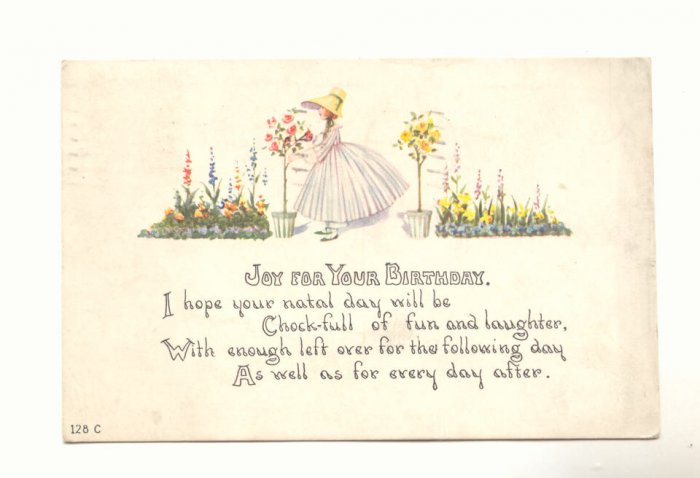 JOY FOR YOUR BIRTHDAY.
I hope your natal day will be
Chock-full of fun and laughter,
With enough left over for the following day
As well as for every day after.
128 C